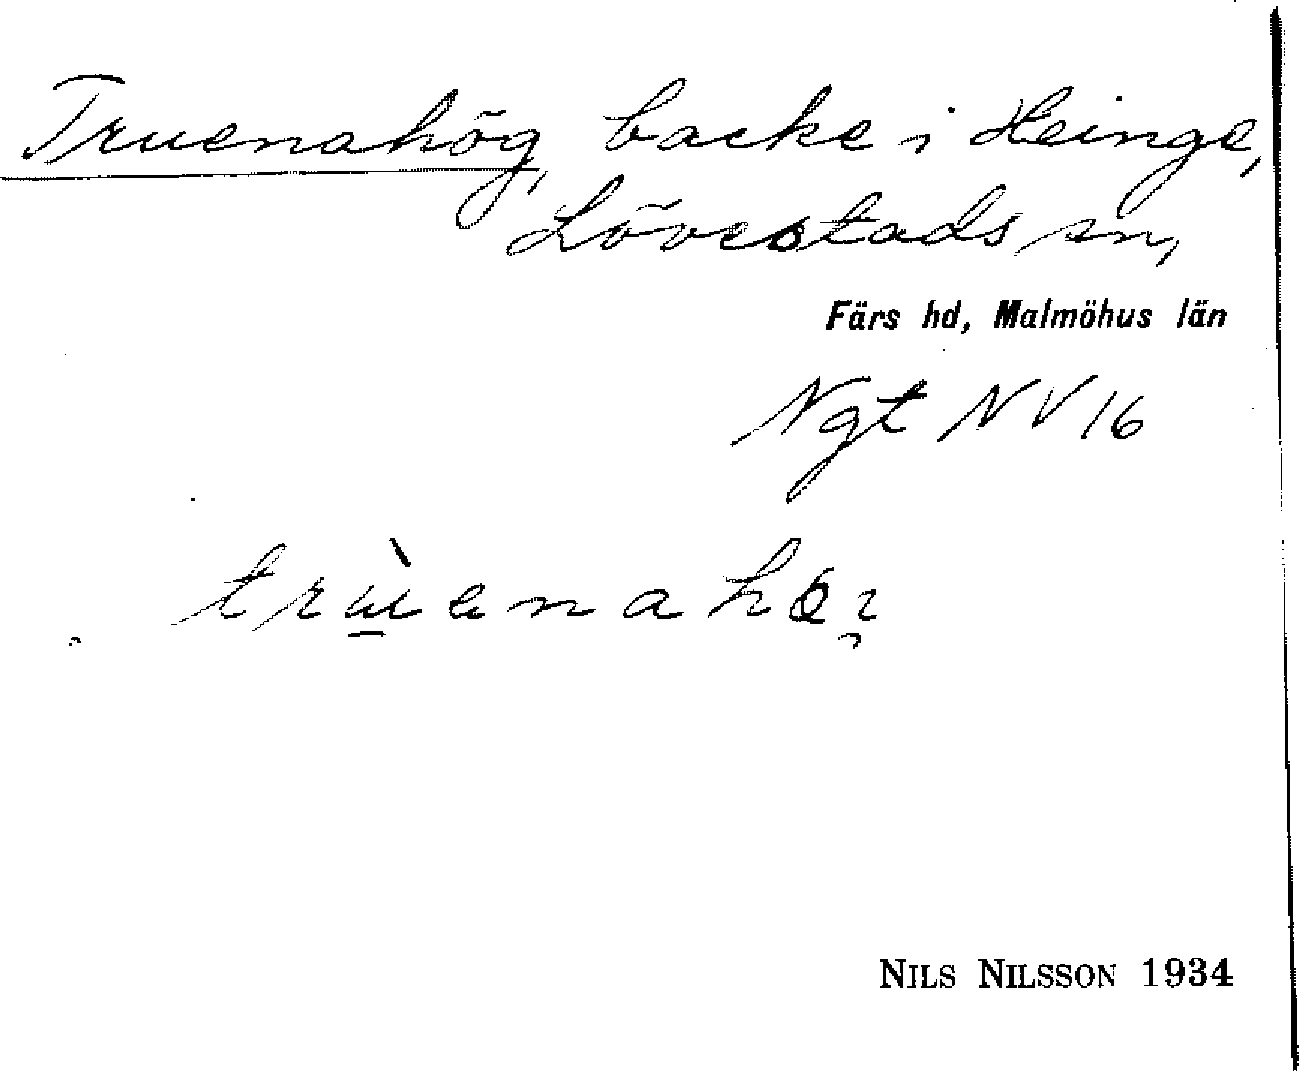 Truenahög, backe i Heinge,
Lövestads sn,
Färs hd, Malmöhus län
Ngt NV 16
NILS NILSSON 1934